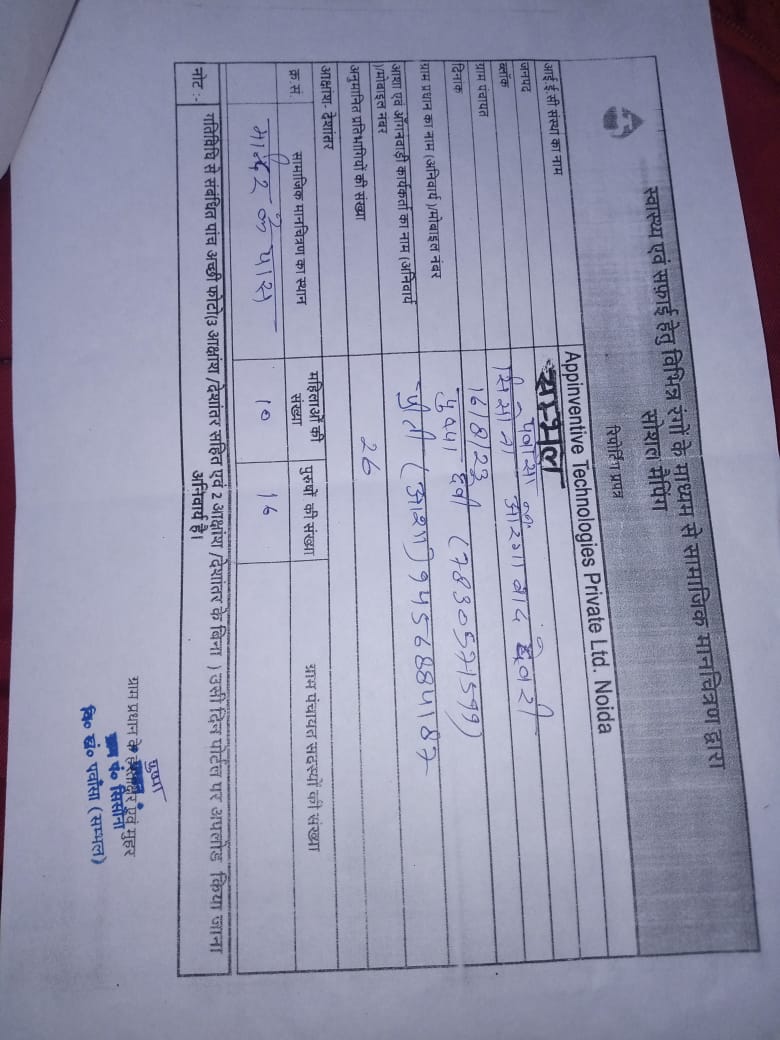 स्वास्थ्य एवं सफ़ाई हेतु विभिन्न रंगों के माध्यम से सामाजिक मानचित्रण द्वारा
सोशल मैपिंग
रिपोर्टिंग प्रपत्र
आई ई सी संस्था का नाम Appinventive Technologies Private Ltd. Noida
जनपद सम्भल
ब्लॉक पवांसा
ग्राम पंचायत सिसौना
दिनांक 16/8/23
ग्राम प्रधान का नाम (अनिवार्य)/मोबाइल नंबर पुष्पा देवी (7830571599)
आशा एवं आँगनवाड़ी कार्यकर्ता का नाम (अनिवार्य )/मोबाइल नंबर (आशा) 9456884187
अनुमानित प्रतिभागियों की संख्या 26
आक्षांश- देशांतर
क्र.सं सामाजिक मानचित्रण का स्थान महिलाओं की संख्या पुरुषों की संख्या ग्राम पंचायत सदस्यों की संख्या
मन्दिर के पास 10 16
नोट :- गतिविधि से संबंधित पांच अच्छी फोटो(3 आक्षांश /देशांतर सहित एवं 2 आक्षांश /देशांतर के बिना ) उसी दिन पोर्टल पर अपलोड किया जाना
अनिवार्य है।
पुष्पा
ग्राम प्रधान के हस्ताक्षर एवं मुहर
ग्रा० पं० सिसौना
वि० खं० पवांसा (सम्भल)